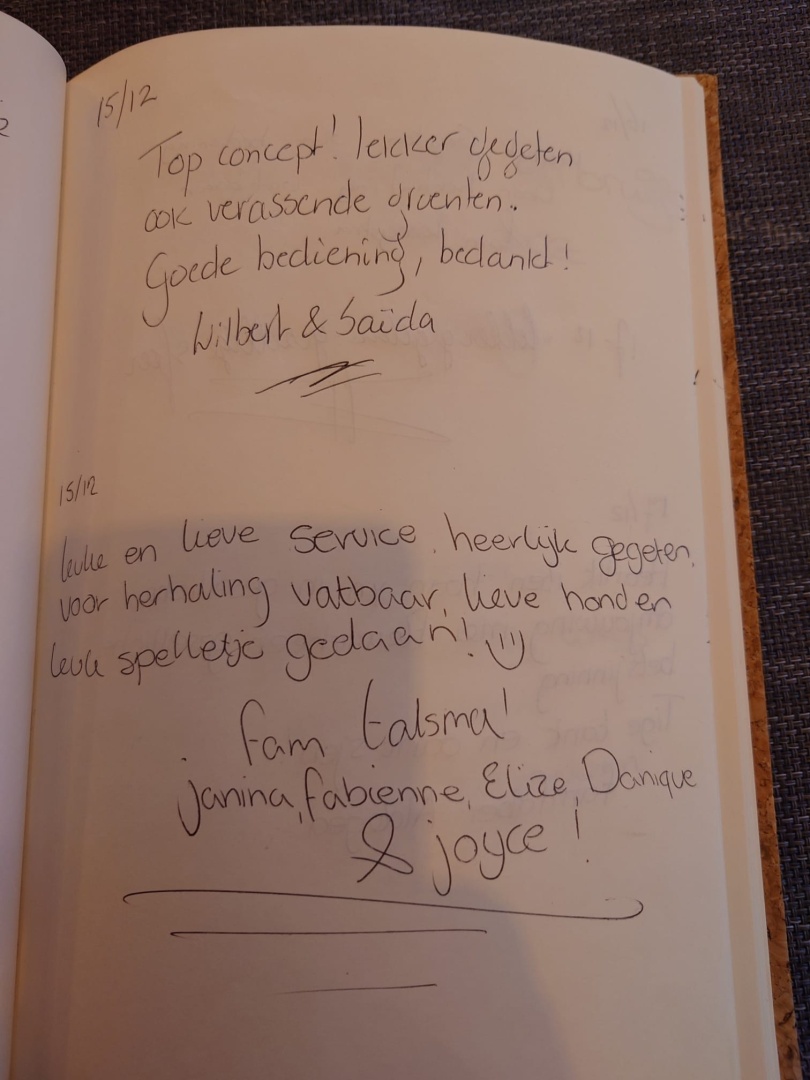 15/12
Top concept! lekker gegeten
ook verassende groenten.
Goede bediening, bedankt!
Wilbert & Saïda
15/12
leuke en lieve service. heerlijk gegeten.
voor herhaling vatbaar, lieve hond en
leuk spelletje gedaan!
fam talsma!
janina, fabienne, Elize, Danique
& joyce!